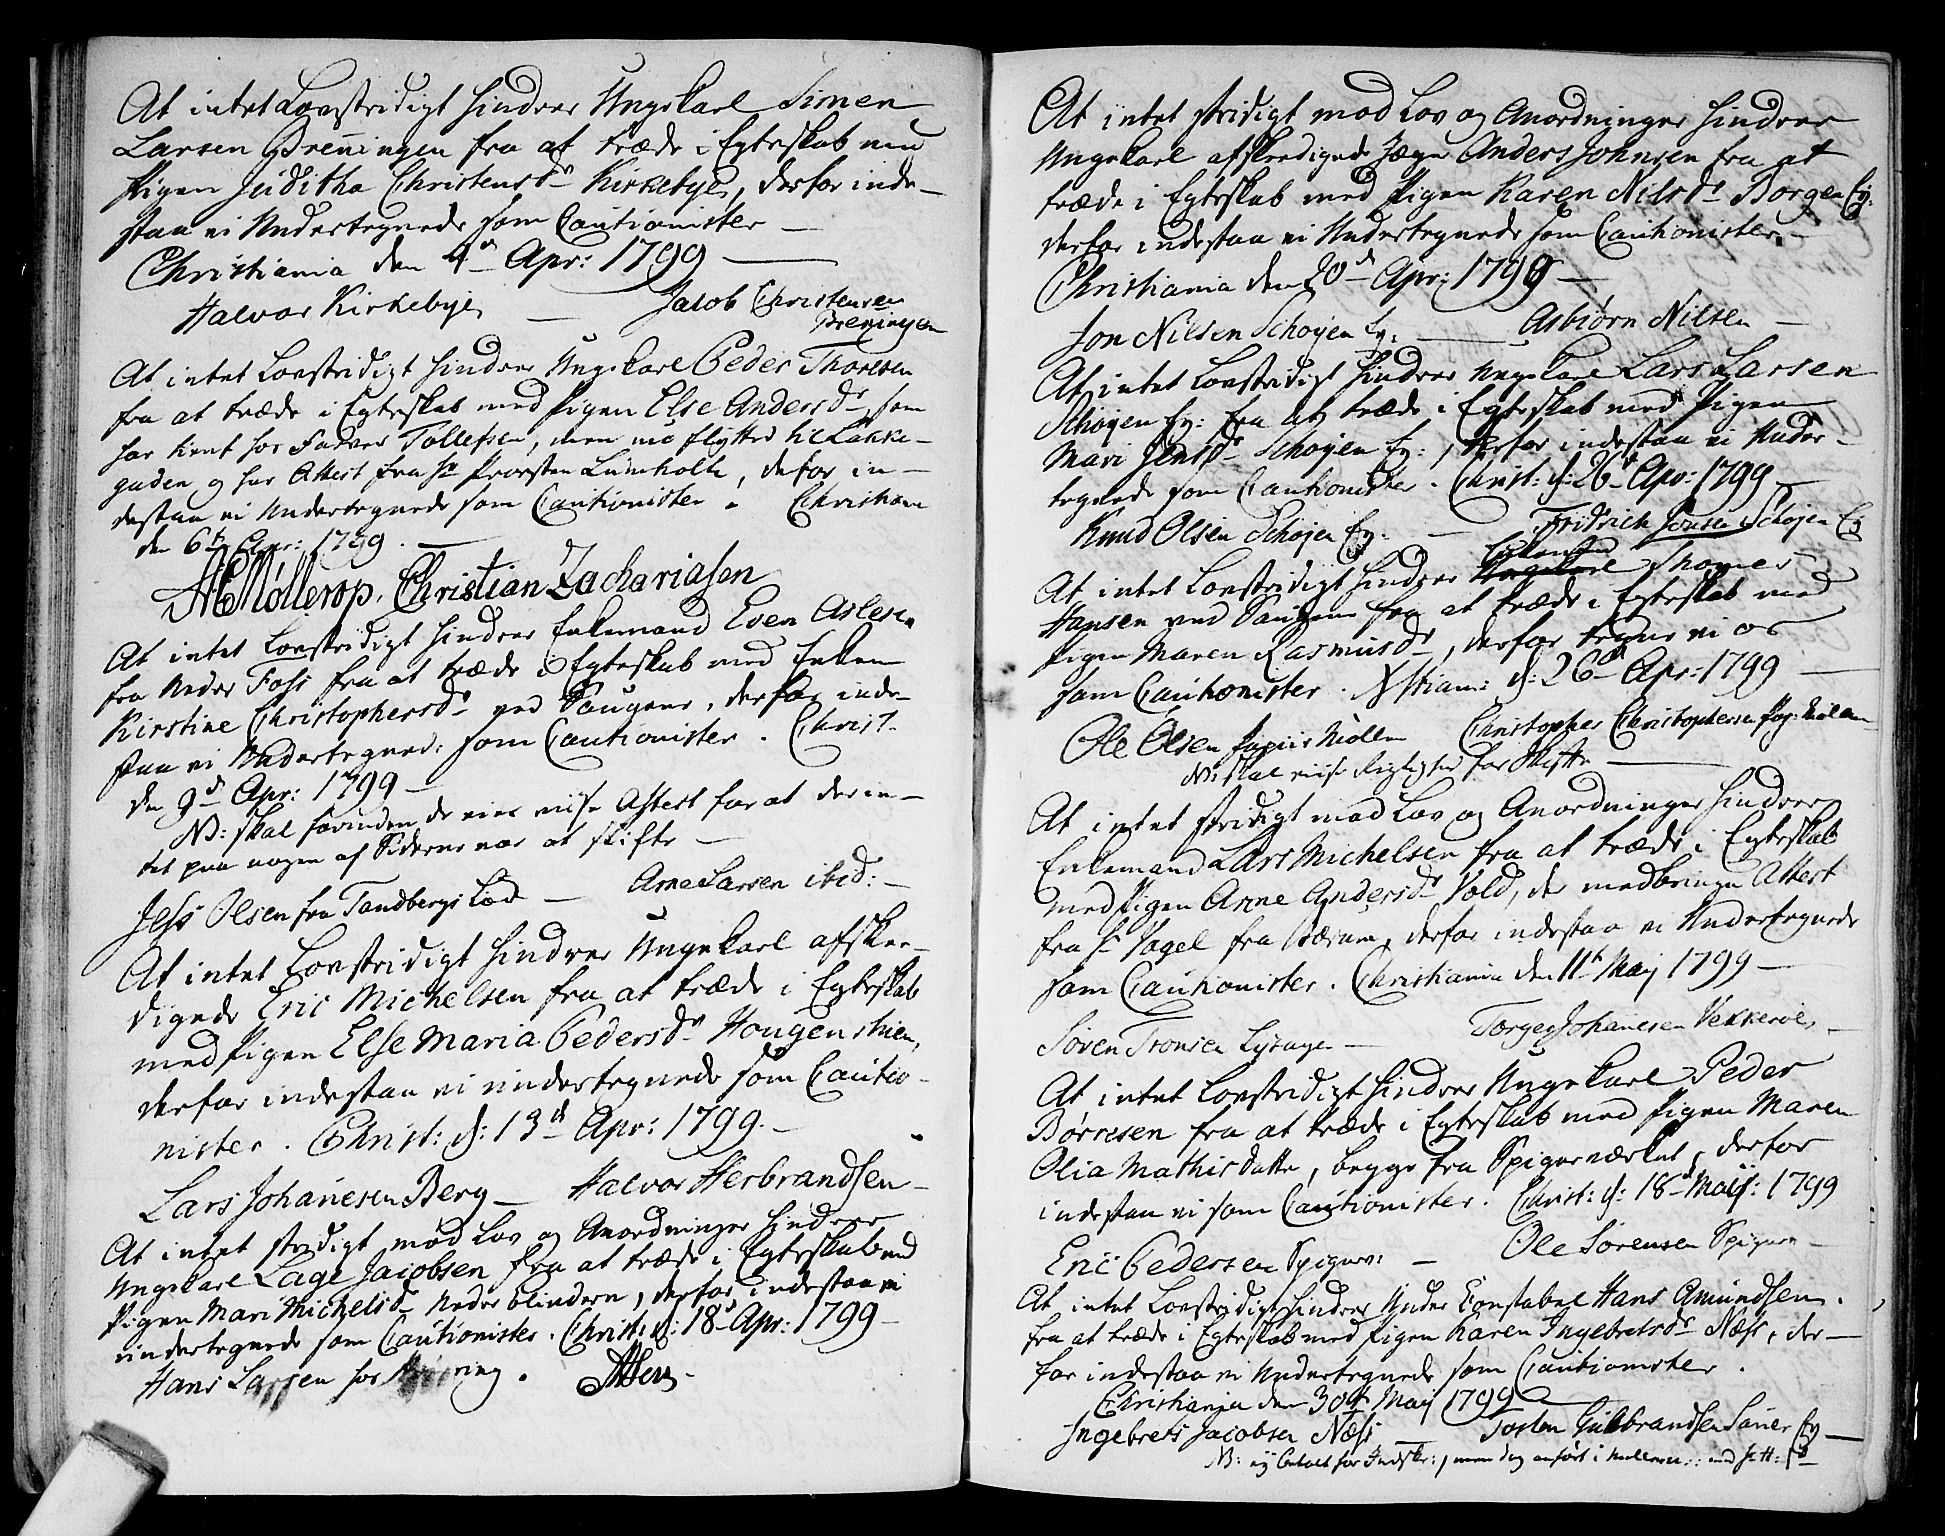 At intet Lovstridigt hindrer Ungekarl Simen
Larsen Breningen fra at træde i Egteskab med
Pigen Juditha Christensdr Kirkebye, derfor inde-
staa vi Undertegnede som Cautionister
Christiania den 4de Apr: 1799
Halvor Kirkebye Jacob Christensen
Breningen
At intet Lovstridigt hindrer Ungekarl Peder Thoresen
fra at træde i Egteskab med Pigen Else Andersdr som
har tient hos Farver Tollefsen, men nu flytted til Lakke-
gaden og har Attest fra Hr Provsten Lumholtz, defor in-
destaa vi Undertegnede som Cautionister. Christiania
den 6te Apr: 1799.
Møllerop. Christian Zachariasen
At intet Lovstridigt hindrer Enkemand Even Aslesen
fra Neder Foss fra at træde i Egteskab med Enken
Kirstine Christophersdr ved Saugene, derfor inde-
staa vi Undertegned: som Cautionister. Christ.
den 9de Apr: 1799
NB: skal forinden de vies viise Attest for at der in-
tet paa nogen af Siderne var at skifte
Jess Olsen fra Tandbergs Lød Arne Larsen ibid:
At intet Lovstridigt hindrer Ungekarl afskee-
digede Eric Michelsen fra at træde i Egteskab
med Pigen Else Maria Pedersdr Hougenstuen,
derfor indestaa vi undertegnede som Cautio-
nister. Christ: d: 13de Apr: 1799.
Lars Johanesen Berg Halvor Herbrandsen
At intet stridigt mod Lov og Anordninger hindrer
Ungekarl Lage Jacobsen fra at træde i Egteskab med
Pigen Mari Michelsdr Neder blindern, derfor indestaa vi
undertegnede som Cautionister. Christ: d: 18de Apr: 1799
Hans Larsen hos
At intet stridigt mod Lov og Anordninger hindrer
Ungekarl afskeedigede Jæger Anders Johnsen fra at
træde i Egteskab med Pigen Karen Nilsdr Borgen Ey:
derfor indestaa vi Undertegnede som Cautionister
Christiania den 20de Apr: 1799
Jon Nilsen Schøyen Ey: Asbiørn Nilsen
At intet Lovstridigt hindrer Ungekarl Lars Larsen
Schøyen Ey: fra at træde i Egteskab med Pigen
Mari Jensdr Schøyen Ey:, derfor indestaa vi Under-
tegnede som Cautionister. Christ: d: 26de Apr: 1799
Knud Olsen Schøjen Ey: Fridrich Jonsen Schøjen Ey
Enkemand
At intet Lovstridigt hindrer Ungekarl Thomes
Hansen ved Saugene fra at træde i Egteskab med
Pigen Maren Rasmusdr, derfor tegne vi os
som Cautionister. Xstian: d: 26de Apr: 1799
Ole Olsen Papiirs Møllen Christopher Christophersen Pap: Møllen
NB: skal viise Rigtighed for Skifte
At intet stridigt mod Lov og Anordninger hindrer
Enkemand Lars Michelsen fra at træde i Egteskab
med Pigen Anne Andersdr Vold, der medbringer Attest
fra Hr Vogel fra Bærum, derfor indestaa vi Undertegnede
som Cautionister. Christiania den 11te Maj 1799
Søren Tronsen Lysager Torger Johanesen Vekkerøe,
At intet Lovstridigt hindrer Ungekarl Peder
Børresen fra at træde i Egteskab med Pigen Maren
Olia Mathisdatter, begge fra Spigerværket, derfor
indestaa vi som Cautionister. Christ: d: 18de Maij: 1799
Eric Pedersen Spigerv: Ole Sørensen Spigerv
At intet Lovstridigt hindrer Under Constabel Hans Amundsen
fra at træde i Egteskab med Pigen Karen Ingebretsdr Næss, der-
for indestaa vi Undertegnede som Cautionister.
Christiania den 30te Maij 1799
Ingebret Jacobsen Næss Torsten Gulbrandsen Saner Ey